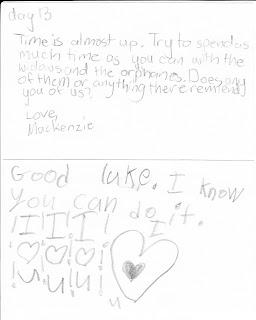 day 13
Time is almost up. Try to spend as
much time as you can with the
widows and the orphanes. Does any
of them or anything there remiend
you of us?
Love,
Mackenzie
Good luke. I know
you can do it.
! I ! I ! I ! I
! ♡ ! ♡ ! ♡ !
! u ! u ! u ! u